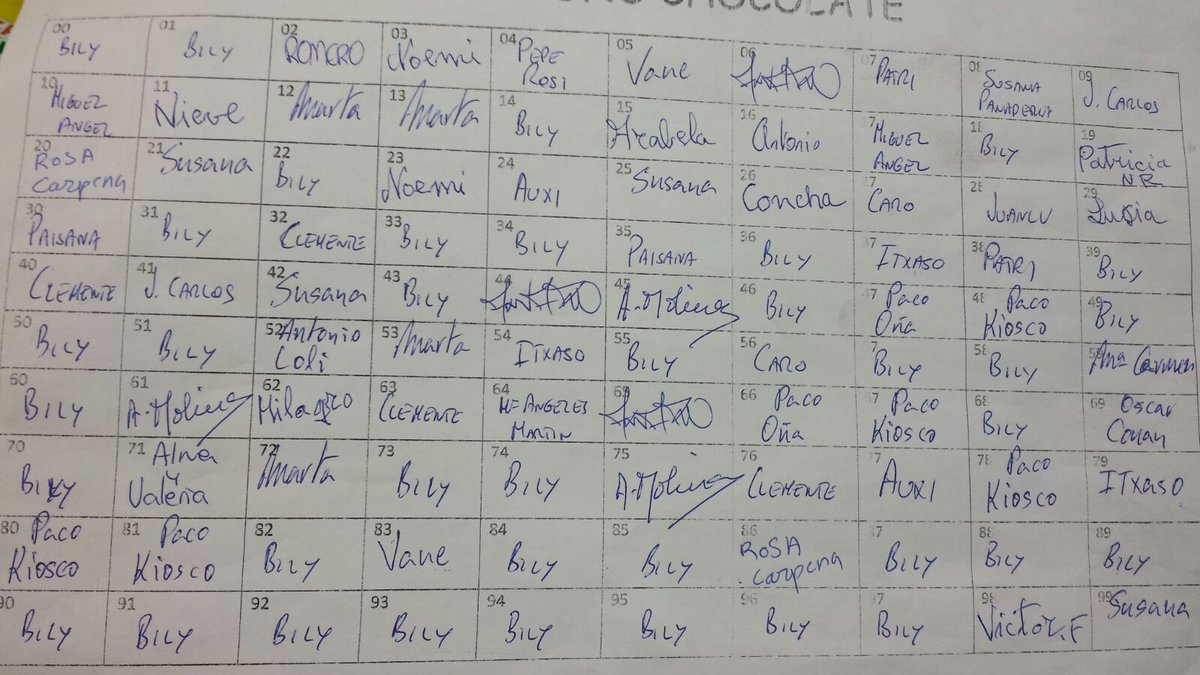 CHOCOLATE
00 BILY 01 BILY 02 ROMERO 03 Noemi 04 PEPE ROSI 05 Vane 06 07 PATRI 08 SUSANA PANADERIA 09 J. CARLOS
10 MIGUEL ANGEL 11 Nieve 12 Marta 13 Marta 14 BILY 15 Arabela 16 Antonio 17 MIGUEL ANGEL 18 BILY 19 Patricia NR
20 ROSA Carpena 21 Susana 22 BILY 23 Noemi 24 AUXI 25 Susana 26 Concha 27 CARO 28 JUANLU 29 Lusia
30 PAISANA 31 BILY 32 CLEMENTE 33 BILY 34 BILY 35 PAISANA 36 BILY 37 ITXASO 38 PATRI 39 BILY
40 CLEMENTE 41 J. CARLOS 42 Susana 43 BILY 44 45 A. Molina 46 BILY 47 Paco Oña 48 Paco Kiosco 49 BILY
50 BILY 51 BILY 52 Antonio Coli 53 Marta 54 ITXASO 55 BILY 56 CARO 57 BILY 58 BILY 59 Mª Carmen
60 BILY 61 A. Molina 62 63 CLEMENTE 64 Mª ANGELES MARTIN 65 66 Paco Oña 67 Paco Kiosco 68 BILY 69 Oscar Conan
70 BILY 71 Alna y Valeria 72 Marta 73 BILY 74 BILY 75 A. Molina 76 CLEMENTE 77 AUXI 78 Paco Kiosco 79 ITXASO
80 Paco Kiosco 81 Paco Kiosco 82 BILY 83 Vane 84 BILY 85 BILY 86 ROSA Carpena 87 BILY 88 BILY 89 BILY
90 BILY 91 BILY 92 BILY 93 BILY 94 BILY 95 BILY 96 BILY 97 BILY 98 Victor.F 99 Susana